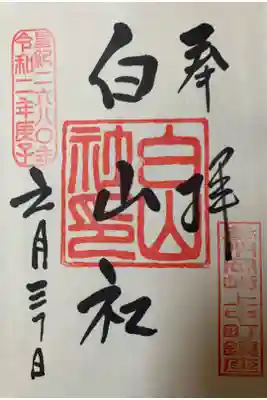 奉拝
白山社
白山
皇紀二六八〇年
令和二年庚子
六月三十日